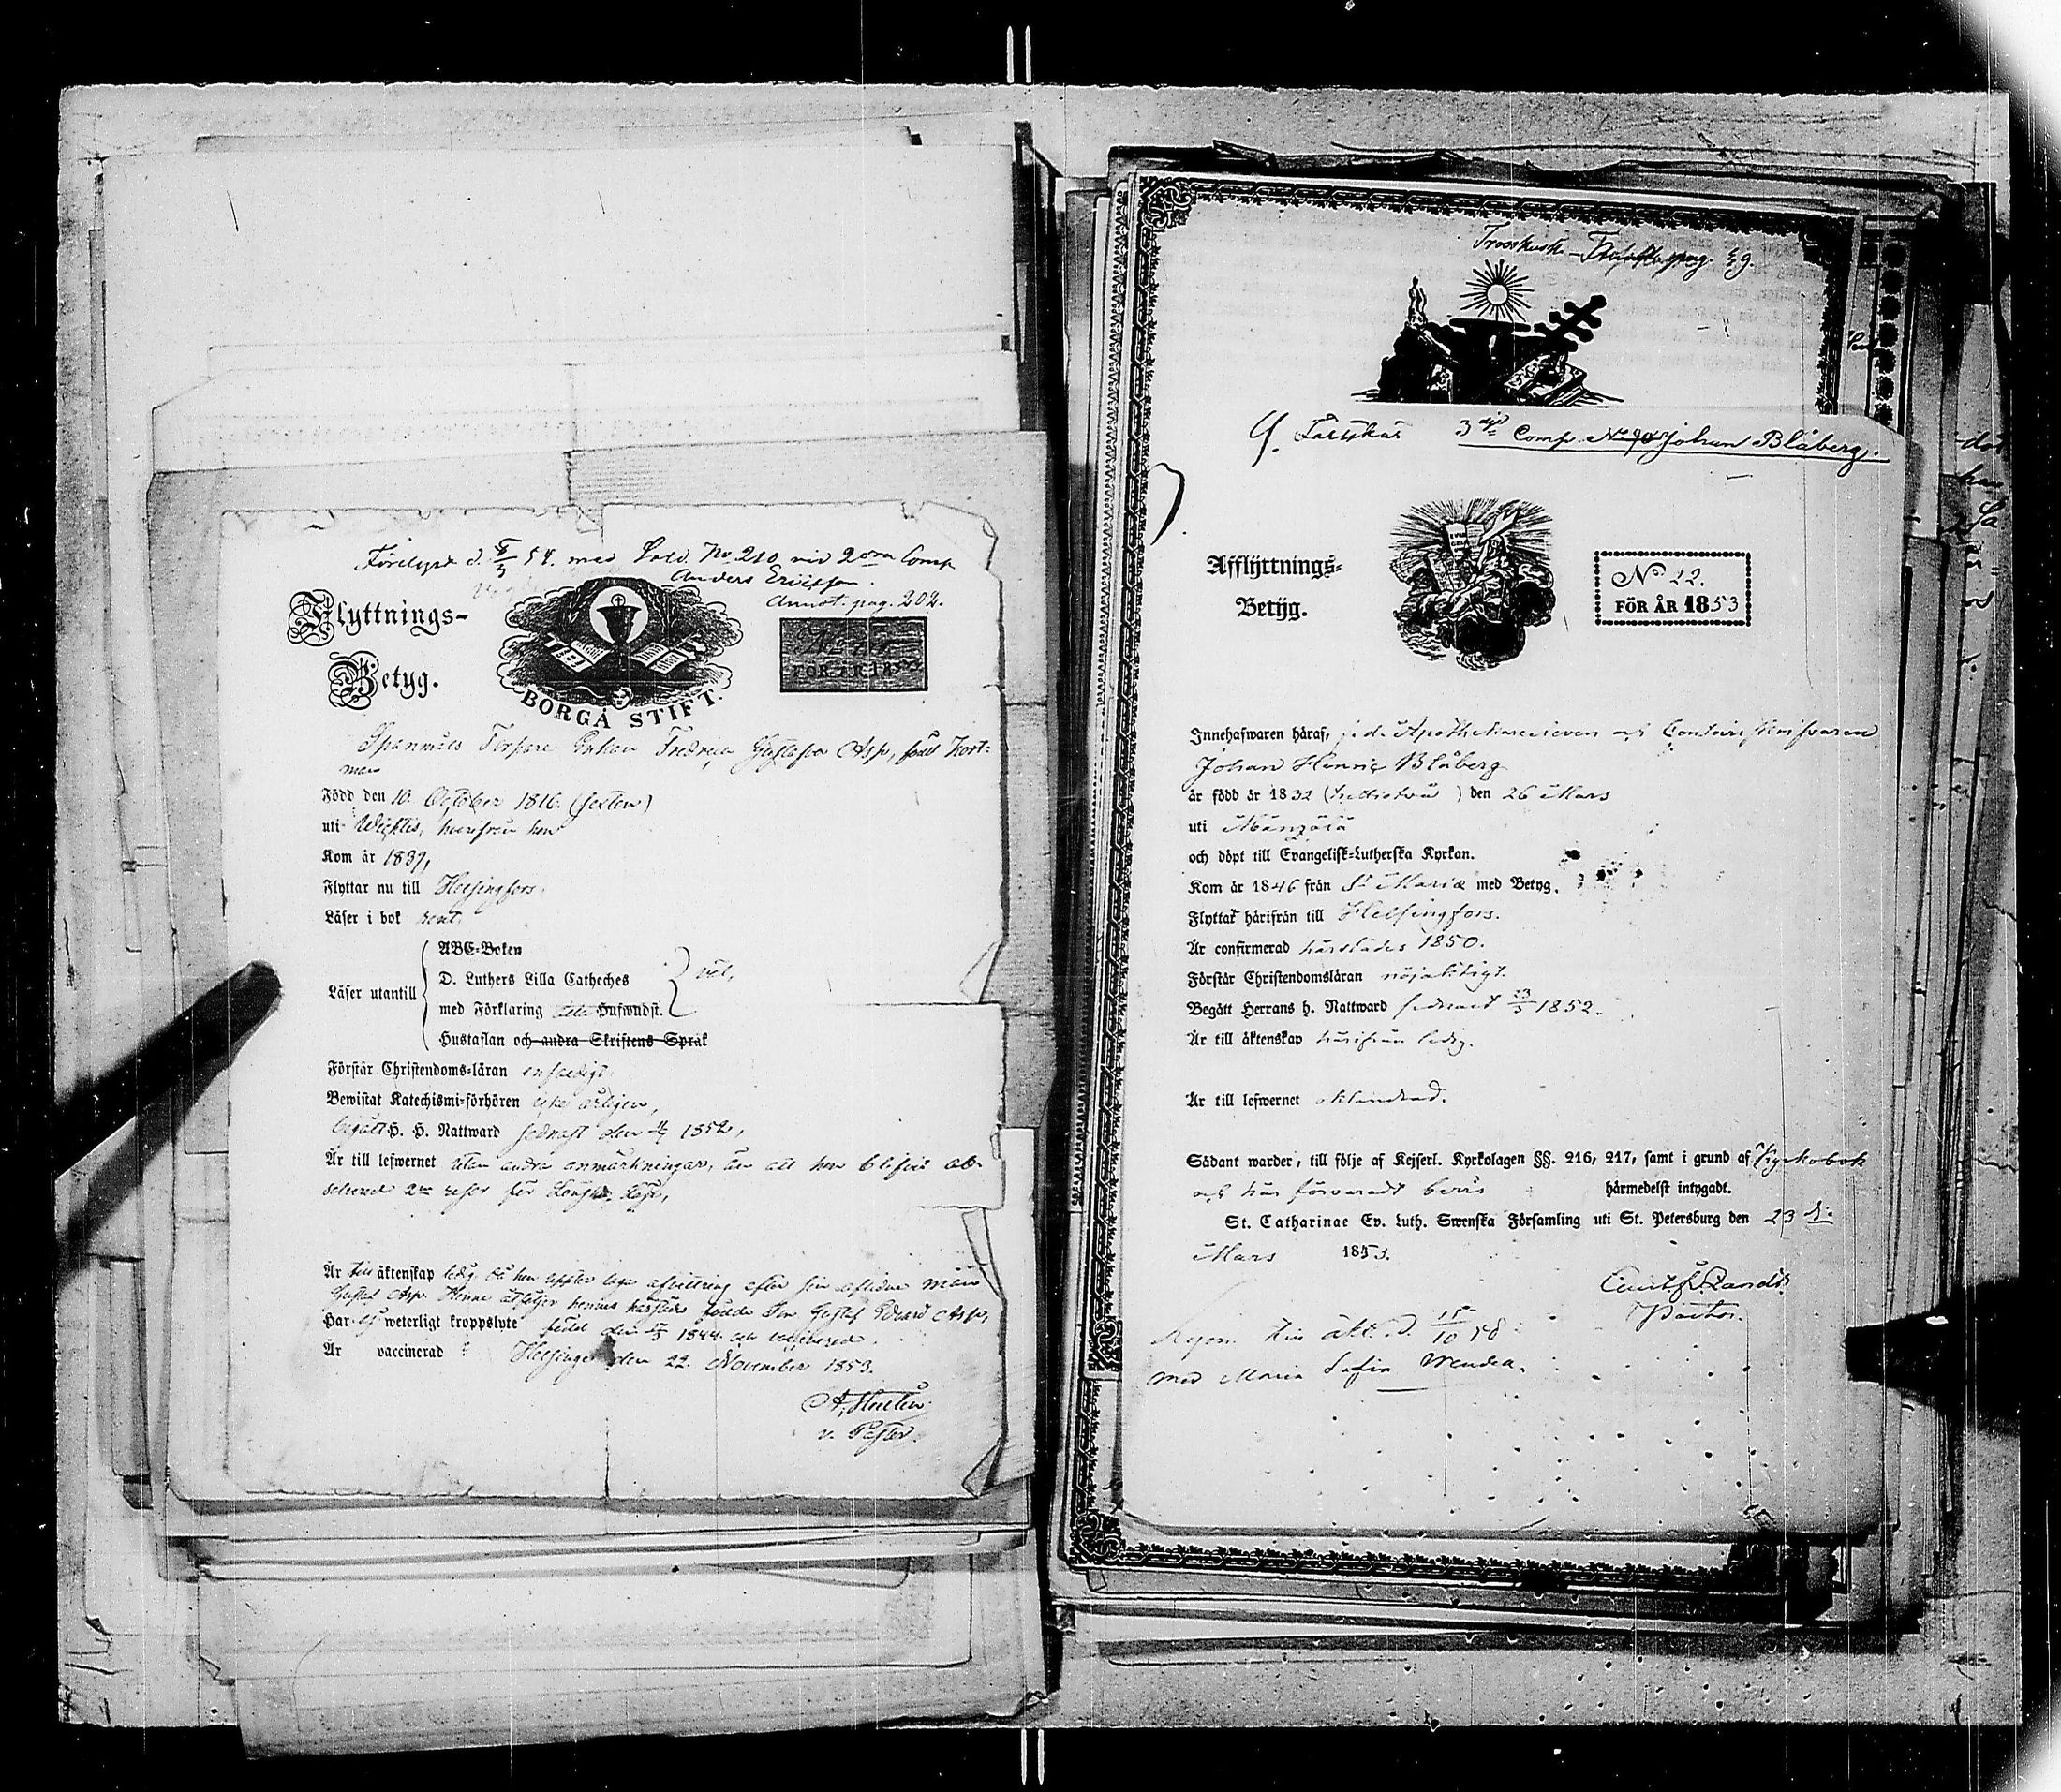 Förelyst d. 5/3 54. med Sold. No 210 vid 2dra Comp
Anders Ericsson.
Annot. pag. 202.
Flyttnings-
Betyg.
BORGÅ STIFT.
FÖR ÅR 1853
Enkan Fredrica Asp, född Hort-
man
Född den 10. October 1816. (sexton)
uti Wichtis, hvarifrån hon
Kom år 1839,
Flyttar nu till Helsingfors.
Läser i bok rent.
Läser utantill
ABC-Boken
D. Luthers Lilla Catheches
med Förklaring Hufwudst.
Hustaflan och andra Skriftens Språk
väl,
Förstår Christendoms-läran enfaldigt
Bewistat Katechismi-förhören årligen,
begått H. H. Nattward sednast den 1852,
Är till lefwernet utan andra anmärkningar, än att hon blifvit ab-
solverad 2ne resor för
Är till äktenskap ledig, då hon efter sin aflidne man
Gustaf Asp. Henne åtföljer hennes härstädes födde Son Gustaf Edvard Asp,
Har ej weterligt kroppslyte född den 1844 och vaccinerad.
Är vaccinerad Helsinge den 22. November 1853.
v. Pastor.
Trosskusk pag. 59.
3dje Comp. No 90 Johan Blåberg.
Afflyttnings-
Betyg.
No 22.
FÖR ÅR 1853
Innehafwaren häraf, f. d. Apothekareeleven och
Johan Henric Blåberg
är född år 1832 (trettiotvå) den 26 Mars
uti
och döpt till Evangelisk-Lutherska Kyrkan.
Kom år 1846 från St Mariæ med Betyg.
Flyttar härifrån till Helsingfors.
Är confirmerad härstädes 1850.
Förstår Christendomsläran nöjaktigt.
Begått Herrans h. Nattward sednast 23/3 1852.
Är till äktenskap härifrån ledig.
Är till lefwernet oklandrad.
Sådant warder, till följe af Kejserl. Kyrkolagen §§. 216, 217, samt i grund af Kyrkobok
och här förvaradt bevis härmedelst intygadt.
St. Catharinae Ev. Luth. Swenska Församling uti St. Petersburg den 23 d.
Mars 1853.
Pastor.
till äkt. d. 15/10 58
med Maria Sofia Wendea.